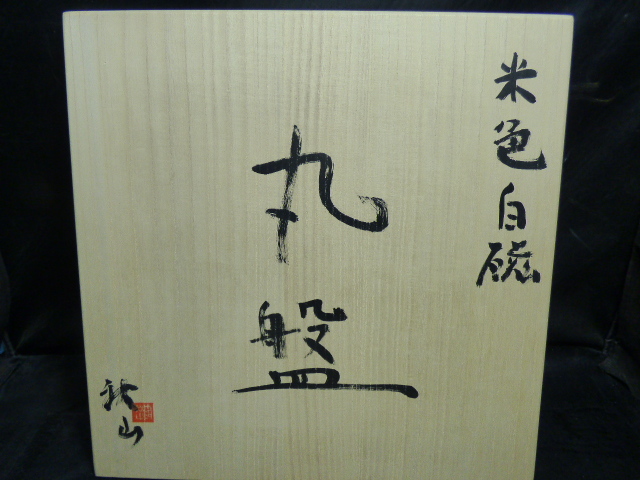 米色白磁
丸盤
秋山